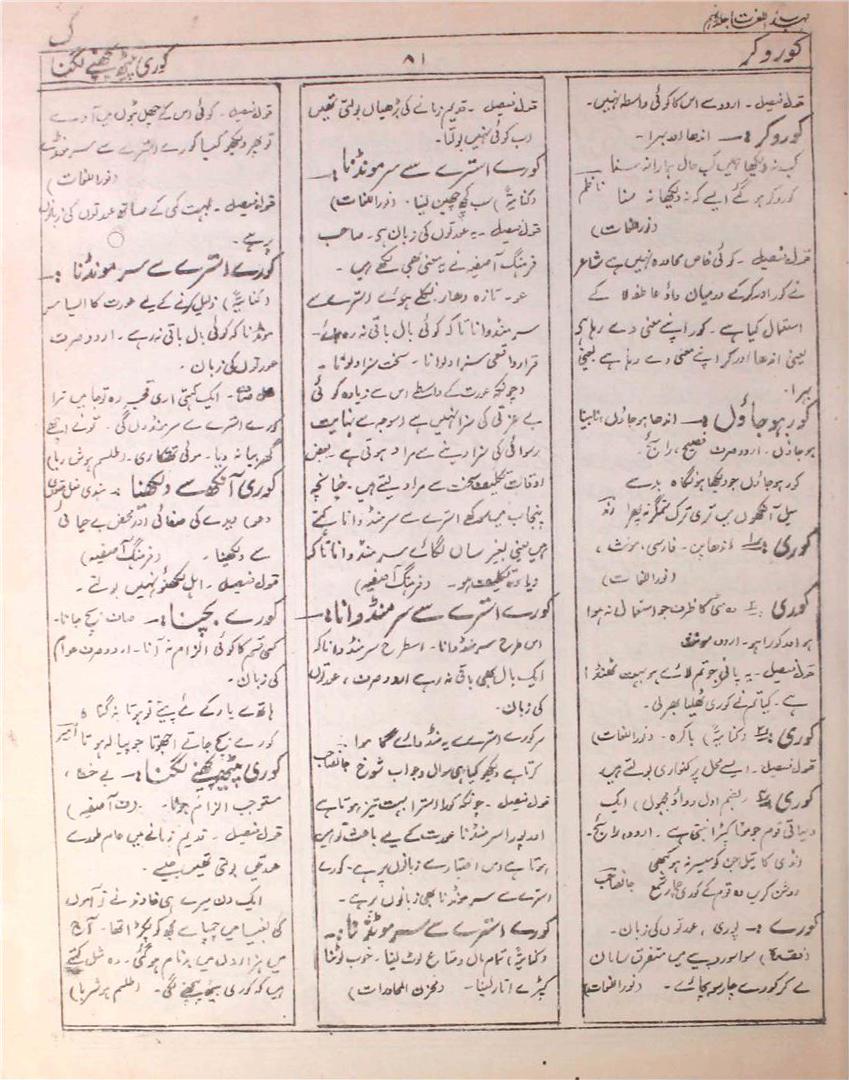 مہذب اللغات جلد نہم
گ
کور و کر
۸۱
کوری پیٹھ کھینے لگنا
قول فیصل ۔ اردو سے اس کا کوئی واسطہ نہیں۔
کور و کر :۔ اندھا اور بہرا۔
کب نہ دیکھا نہیں کب حال ہمارا نہ سنا
کور و کر ہو گئے ایسے کہ نہ دیکھا نہ سنا ناظم
(نور اللغات)
قول فیصل ۔ کوئی خاص محاورہ نہیں ہے شاعر
نے کور اور کر کے درمیان واؤ عاطفہ لا کے
استعمال کیا ہے ۔ کور اپنے معنی دے رہا ہے
یعنی اندھا اور کر اپنے معنی دے رہا ہے یعنی
بہرا۔
کور ہو جاؤں :۔ اندھا ہو جاؤں نابینا
ہو جاؤں ۔ اردو صرف فصیح، رائج۔
کور ہو جاؤں جو دیکھا ہو نگاہ بد سے
میل آنکھوں میں تری ترک ستمگر نہ پھرا رند
کوری :۔ اندھا پن ۔ فارسی، مونث،
(نور اللغات)
کوری :۔ مٹی کا ظرف جو استعمال نہ ہوا
ہو اور کورا ہو۔ اردو مونث
قول فیصل ۔ یہ پانی جو تم لائے ہو بہت ٹھنڈا
ہے ۔ کیا تم نے کوری ٹھلیا بھر لی۔
کوری :۔ (کنایۃً) باکرہ ۔ (نور اللغات)
قول فیصل ۔ ایسے محل پر کنواری بولتے ہیں
کوری :۔ (بضم اول و واؤ مجہول) ایک
دیہاتی قوم جو موٹا کپڑا بنتی ہے ۔ اردو، رائج۔
رنڈی کا تیل جن کو میسر نہ ہو کبھی
روشن کریں وہ قوم کے کوری ہزار شمع جانصاحب
کورے :۔ پوری ، عورتوں کی زبان ۔
(فقرہ) سوا سو روپے میں متفرق سامان
لے کر کورے چار سو بچائے ۔ (نور اللغات)
قول فیصل ۔ قدیم زمانے کی بڑھیاں بولتی تھیں
اب کوئی نہیں بولتا۔
کورے استرے سے سر مونڈنا :۔
(کنایۃً) سب کچھ چھین لینا ۔ (نور اللغات)
قول فیصل ۔ یہ عورتوں کی زبان ہے ۔ صاحب
فرہنگ آصفیہ نے یہ معنی بھی لکھے ہیں ۔
عو ۔ تازہ دھار لگے ہوئے استرے سے
سر منڈوانا تاکہ کوئی بال باقی نہ رہے۔
قرار واقعی سزا دلوانا ۔ سخت سزا دلوانا ۔
(چونکہ عورت کے واسطے اس سے زیادہ کوئی
بے عزتی کی سزا نہیں ہے اس وجہ سے نہایت
رسوائی کی سزا دینے سے مراد ہوتی ہے ۔ بعض
اوقات تکلیف سخت سے مراد لیتے ہیں ۔ چنانچہ
پنجاب میں سوکھے استرے سے سر منڈوانا کہتے
ہیں یعنی بغیر سان لگائے سر منڈوانا تاکہ
زیادہ تکلیف ہو ۔ (فرہنگ آصفیہ)
کورے استرے سے سر منڈوانا :۔
اس طرح سر منڈوانا ۔ اسطرح سر منڈوانا کہ
ایک بال بھی باقی نہ رہے اردو صرف ، عورتوں
کی زبان ۔
سر کورے استرے یہ منڈوائے ہوا
کرتا ہے دیکھو کیا ہی سوال و جواب شوخ جانصاحب
قول فیصل ۔ چونکہ کورا استرا بہت تیز ہوتا ہے
اور پورا سر منڈنا عورت کے لیے باعث توہین
ہوتا ہے اس اعتبار سے زبانوں پر ہے ۔ کورے
استرے سے سر مونڈنا بھی زبانوں پر ہے ۔
کورے استرے سے سر مونڈنا :۔
(کنایۃً) تمام مال و متاع لوٹ لینا ۔ خوب لوٹنا
کپڑے اتار لینا ۔ (مخزن المحاورات)
قول فیصل ۔ کوئی اس کے چھل بٹوں میں آوے
تو پھر دیکھو گیا کورے استرے سے سر منڈتے
(نور اللغات)
قول فیصل ۔ بہت کمی کے ساتھ عورتوں کی زبانوں
پر ہے ۔
کورے استرے سے سر مونڈنا :۔
(کنایۃً) ذلیل کرنے کے لیے عورت کا ایسا سر
مونڈنا کہ کوئی بال باقی نہ رہے ۔ اردو صرف
عورتوں کی زبان ۔
ایک کہتی اری قحبہ رہ تو جا میں ترا
کورے استرے سے سر مونڈوں گی ۔ تونے اچھے
گھر بیانہ دیا ۔ موئی تھکاری ۔ (طلسم ہوش ربا)
کوری آنکھ سے دیکھنا :۔ ہندی فعل متعدی
(عو) دیدے کی صفائی اور محض بے حیائی
سے دیکھنا ۔ (فرہنگ آصفیہ)
قول فیصل ۔ اہل لکھنؤ نہیں بولتے ۔
کورے بچنا :۔ صاف بچ جانا ۔
کسی قسم کا کوئی الزام نہ آنا ۔ اردو صرف عوام
کی زبان ۔
ہاتھ سے یار کے مے پیتے تو ہوتا نہ گناہ
کورے بچ جاتے اچھوتا جو پیالہ ہوتا امیر
کوری پیٹھ کھینے لگنا :۔ بے خطا ،
مستوجب الزام ہونا ۔ (ف آصفیہ)
قول فیصل ۔ قدیم زمانے میں عام طور سے
عورتیں بولتی تھیں جیسے ۔
ایک دن میرے ہی خاوند نے زاہدوں
کی بغیا میں چھپا کے مجھ کو پکڑا تھا ۔ آج
میں ہزاروں میں بدنام ہو گئی ۔ وہ مثل کہتے
ہیں کہ کوری پیٹھ کھینے لگی ۔ (طلسم ہوشربا)